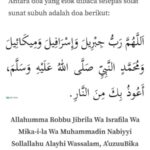 Antara doa yang elok dibaca selepas solat
sunat subuh adalah doa berikut:
اَللَّهُمَّ رَبَّ جِبْرِيلَ وَإِسْرَافِيلَ وَمِيكَائِيلَ
وَمُحَمَّدٍ النَّبِيِّ صَلَّى اللهُ عَلَيْهِ وَسَلَّمَ،
أَعُوذُ بِكَ مِنَ النَّارِ.
Allahumma Robbu Jibrila Wa Israfila Wa
Mika-i-la Wa Muhammadin Nabiyyi
Sollallahu Alayhi Wassalam, A'uzuuBika